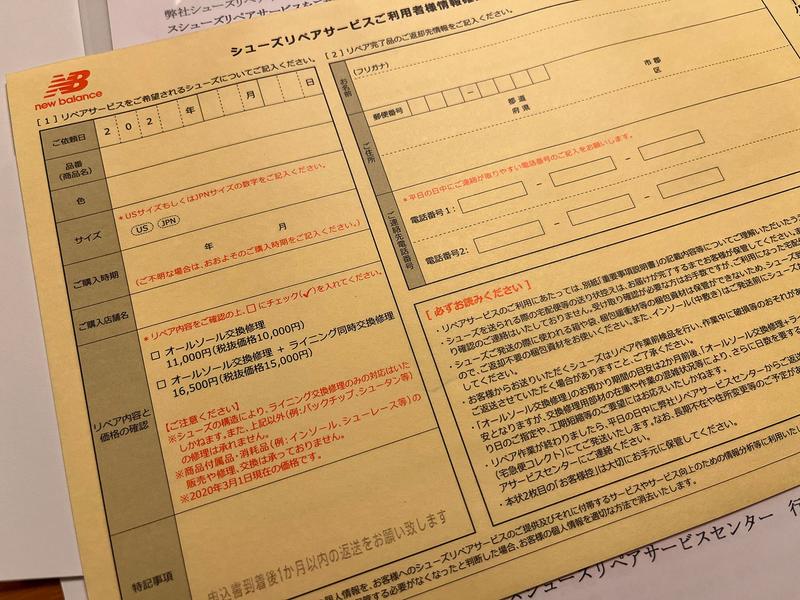 弊社シューズリペア
スシューズリペアサービスも
シューズリペアサービスご利用者様情報確
new balance
[1] リペアサービスをご希望されるシューズについてご記入ください。
ご依頼日
2 0 2 年 月 日
品番
(商品名)
色
サイズ
*USサイズもしくはJPNサイズの数字をご記入ください。
US JPN
ご購入時期
年 月
(ご不明な場合は、おおよそのご購入時期をご記入ください。)
ご購入店舗名
リペア内容と
価格の確認
*リペア内容をご確認の上、□にチェック(✓)を入れてください。
□ オールソール交換修理
11,000円(税抜価格10,000円)
□ オールソール交換修理 + ライニング同時交換修理
16,500円(税抜価格15,000円)
【ご注意ください】
※シューズの構造により、ライニング交換修理のみの対応はいた
しかねます。また、上記以外(例:バックチップ、シュータン等)
の修理は承れません。
※商品付属品・消耗品(例:インソール、シューレース等)の
販売や修理、交換は承っておりません。
※2020年3月1日現在の価格です。
特記事項
申込書到着後1か月以内の返送をお願い致します
[2] リペア完了品のご返却先情報をご記入ください。
お名前
(フリガナ)
ご住所
郵便番号 −
都道
府県
市郡
区
ご連絡先電話番号
*平日の日中にご連絡が取りやすい電話番号のご記入をお願いします。
電話番号1: − −
電話番号2: − −
[ 必ずお読みください ]
・リペアサービスのご利用にあたっては、別紙「重要事項説明書」の記載内容等についてご理解いただいたうえ
・シューズを送られる際の宅配便等の送り状控えは、お届けが完了するまでお客様が保管してください。
り確認のご連絡はいたしておりません。受け取り確認が必要な方はお手数ですが、ご利用になった宅配
・シューズご発送の際に使われる箱や袋、梱包緩衝材等の梱包資材は保管ができないため、シューズを
ので、ご返却不要の梱包資材をお使いください。また、インソール(中敷き)はご発送前にシューズ
してください。
・お客様からお送りいただくシューズはリペア作業前検品を行い、作業中に破損等のおそれがあ
ご返送させていただく場合がありますこと、ご了承ください。
・「オールソール交換修理」のお預かり期間の目安は2か月前後、「オールソール交換修理+ライ
安となりますが、交換修理用部材の在庫や作業の混雑状況等により、さらに日数を要する
り日のご指定や、工期短縮等のご要望にはお応えいたしかねます。
・リペア作業が終わりましたら、平日の日中に弊社リペアサービスセンターからご返送
(宅急便コレクト)にてご発送いたします。なお、長期不在や住所変更等のご予定があ
アサービスセンターにご連絡ください。
・本状2枚目の「お客様控」は大切にお手元に保管してください。
個人情報を、お客様へのシューズリペアサービスのご提供及びそれに付帯するサービスやサービス向上のための情報分析等に利用いた
する必要がなくなったと判断した場合、お客様の個人情報を適切な方法で消去いたします。
スシューズリペアサービスセンター 行